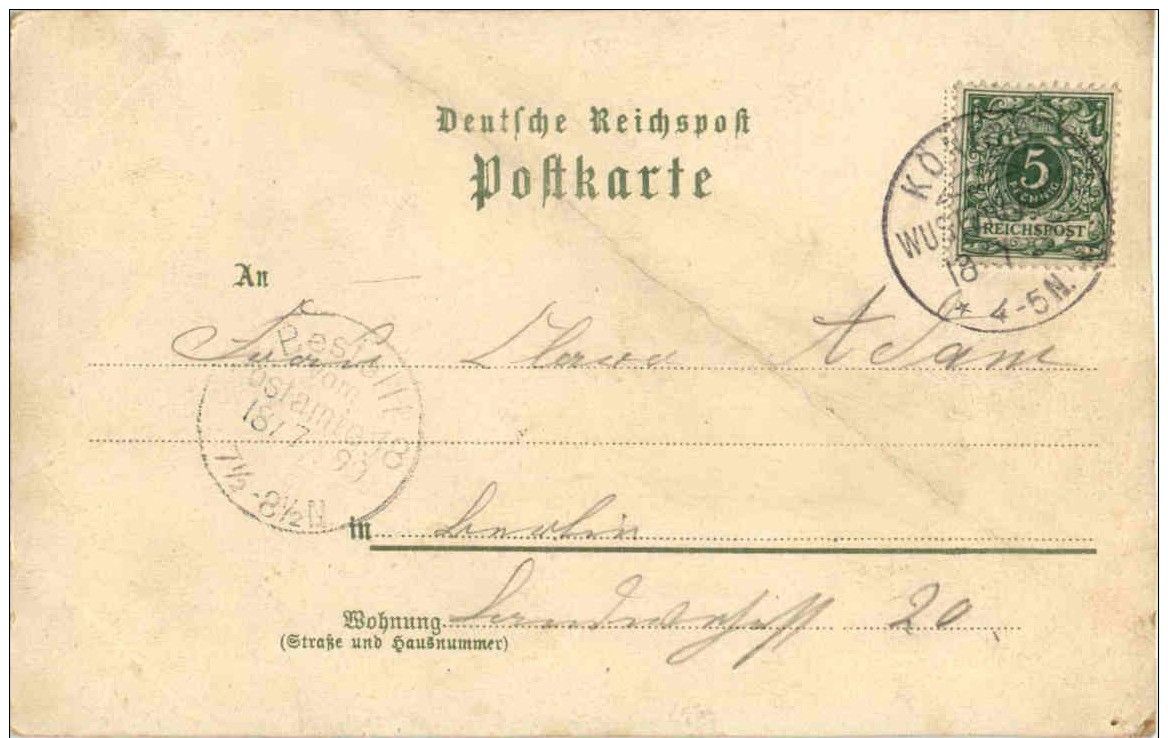 Deutsche Reichspost
Postkarte
5
REICHSPOST
KÖ
WUS
18 7
* 4-5 N.
An
Clara Adam
Bestellt
vom
Postamte
18/7 99
7½-8½N
in Berlin
Wohnung 20
(Straße und Hausnummer)